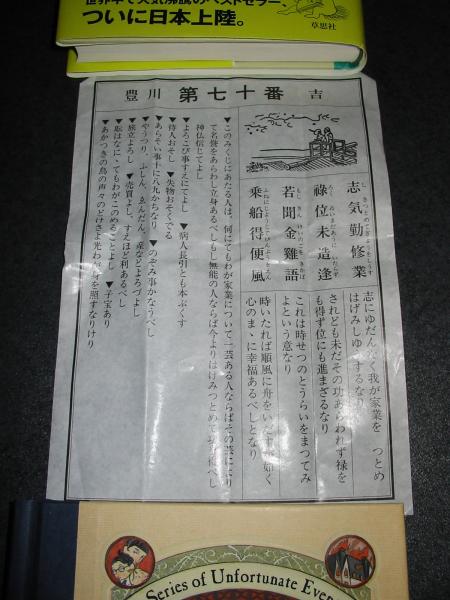 世界中で大気沸騰のベストセラー、
ついに日本上陸。
草思社
豊川 第七十番 吉
志気勤修業
禄位未造逢
若聞金雞語
乗船得便風
志にゆだんなく我が家業を つとめ
はげみしゆ するなり
されども未だその功あらわれず禄を
も得ず位にも進まざるなり
これは時せつのとうらいをまつてみ
よという意なり
時いたれば順風に舟をいだす 如く
心のまゝに幸福あるべしとなり
▼このみくじにあたる人は、何にてもわが家業について一芸ある人ならばその芸により
て名誉をあらわし立身あるべしもし無能の人ならば今よりはげみつとめて
神仏信じてよし
▼よろこび事すえにてよし ▼病人長引とも本ぷくす
▼待人おそし ▼失物おそくでる
▼あらそい事十に八九かちなり ▼のぞみ事かなうべし
▼やうつり、ふしん、ゑんだん、産などよろづよし
▼旅立よろし ▼売買よし、すえほど利あるべし
▼何はなに、てもわがこのめることよし ▼子宝あり
▼あかつきの鳥の声々のどけさよ光わが身を照すなりけり
Series of Unfortunate Even